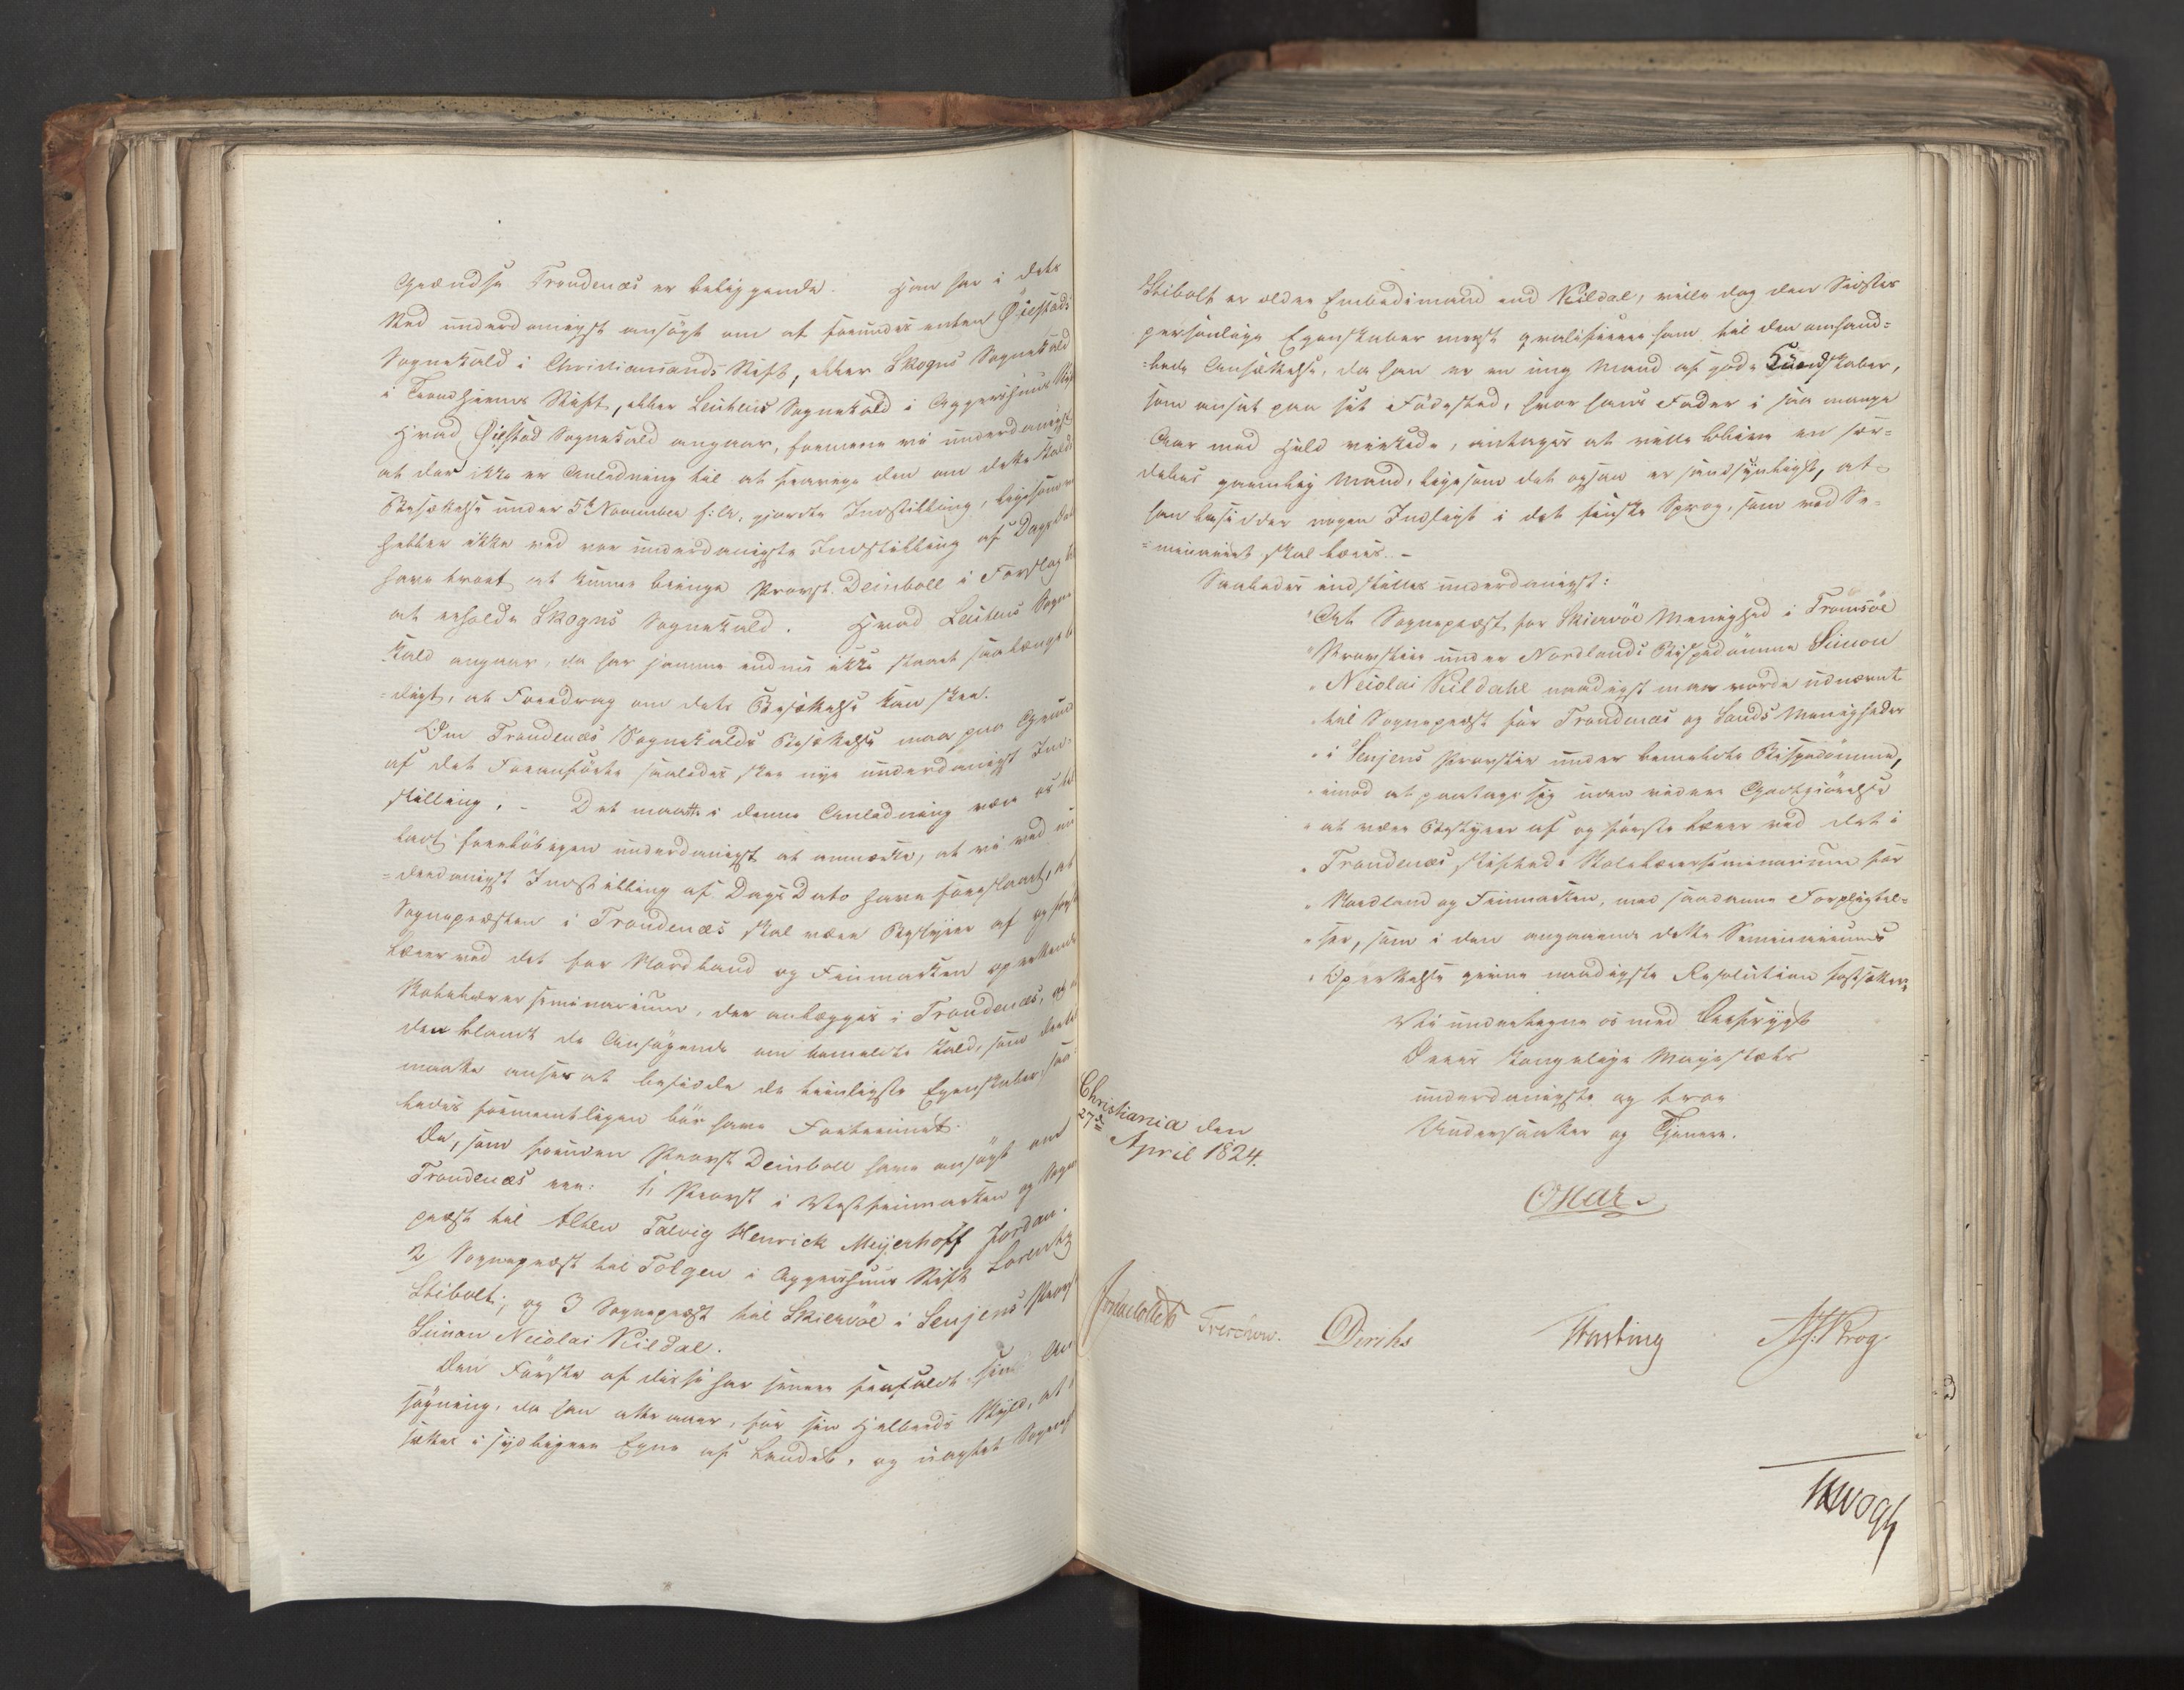 Grændse Trondenæs er beliggende. Han har i dets
Sted underdanigst ansögt om at forundes enten Öiestads
Sognekald i Christiansands Stift, eller Skogns Sognekald
i Trondhiems Stift, eller Leutens Sognekald i Aggershuus
Hvad Öiestad Sognekald angaaer, formene vi underdanigst
at der ikke er Anledning til at fravige den om dette Kalds
Besættelse under 5te November f: A. gjorte Indstilling, ligesom vi
heller ikke ved vor underdanigste Indstilling af Dags Dato
have troet at kunne bringe Provst Deinboll i Forslag til
at erholde Skogns Sognekald. Hvad Leutens Sogne
kald angaaer, da har samme endnu ikke staaet saalænge
=digt, at Foredrag om dets Besættelse kan skee.
Om Trondenæs Sognekalds Besættelse maa paa Grund
af det Foranförte saaledes skee nye underdanigst Ind-
stilling. - Det maatte i denne Anledning være os til
ladt forelöbigen underdanigst at anmærke, at vi ved un
=derdanigst Indstilling af Dags Dato have foreslaaet, at
Sognepræsten i Trondenæs skal være Bestyrer af og förste
Lærer ved det for Nordland og Finmarken oprettende
Skolelærerseminarium, der anlægges i Trondenæs, og at
den blandt de Ansögende om bemeldte Kald, som
maatte ansees at besidde de tienligste Egenskaber, saa
ledes formeentligen bör have Fortrinnet.
De, som foruden Provst Deinboll have ansögt om
Trondenæs ere: 1, Provst i Vestfinmarken og Sogne
præst til Alten Talvig Henrick Meyerhoff Jordan.
2, Sognepræst til Tolgen i Aggershuus Stift Lorentz
Stibolt; og 3 Sognepræst til Skiervöe i Senjens Provst
Simon Nicolai Kildal.
Den Förste af disse har senere frafaldt sin An
sögning, da han attraaer, for sin Helbreds Skyld, at
sættes i sydligere Egne af Landet, og uagtet Sognepræst
Stibolt er ældre Embedsmand end Kildal, ville dog den Sidstes
personlige Egenskaber meest qvalificere ham til den omhand=
=lede Ansættelse, da han er en ung Mand af gode Kundskaber,
som ansat paa sit Födested, hvor hans Fader i saa mange
Aar med Held virkede, antages at ville blive en sær=
deles gavnlig Mand, ligesom det ogsaa er sandsynligst, at
han besidder nogen Indsigt i det finske Sprog, som ved Se=
=minariet skal læres. -
Saaledes indstilles underdanigst:
"At Sognepræst for Skiervöe Menighed i Tromsöe
"Provstie under Nordlands Bispedömme Simon
"Nicolai Kildahl naadigst maa vorde udnævnt
"til Sognepræst for Trondenæs og Sands Menigheder
"i Senjens Provstie under bemeldte Bispedömme,
"imod at paatage sig uden videre Godtgiörelse
"at være Bestyrer af og förste Lærer ved det i
"Trondenæs stiftede Skolelærerseminarium for
"Nordland og Finmarken, med saadanne Forpligtel=
"ser, som i den angaaende dette Seminariums
"Oprettelse givne naadigste Resolution fastsættes"
Vi undertegne os med Ærefrygt
Deres Kongelige Majestæts
underdanigste og troe
Undersaatter og Tjenere.
Christiania den
27de April 1824.
Oskar.
Jonas Collett Treschow. Diriks Hasting Krog
Vogt